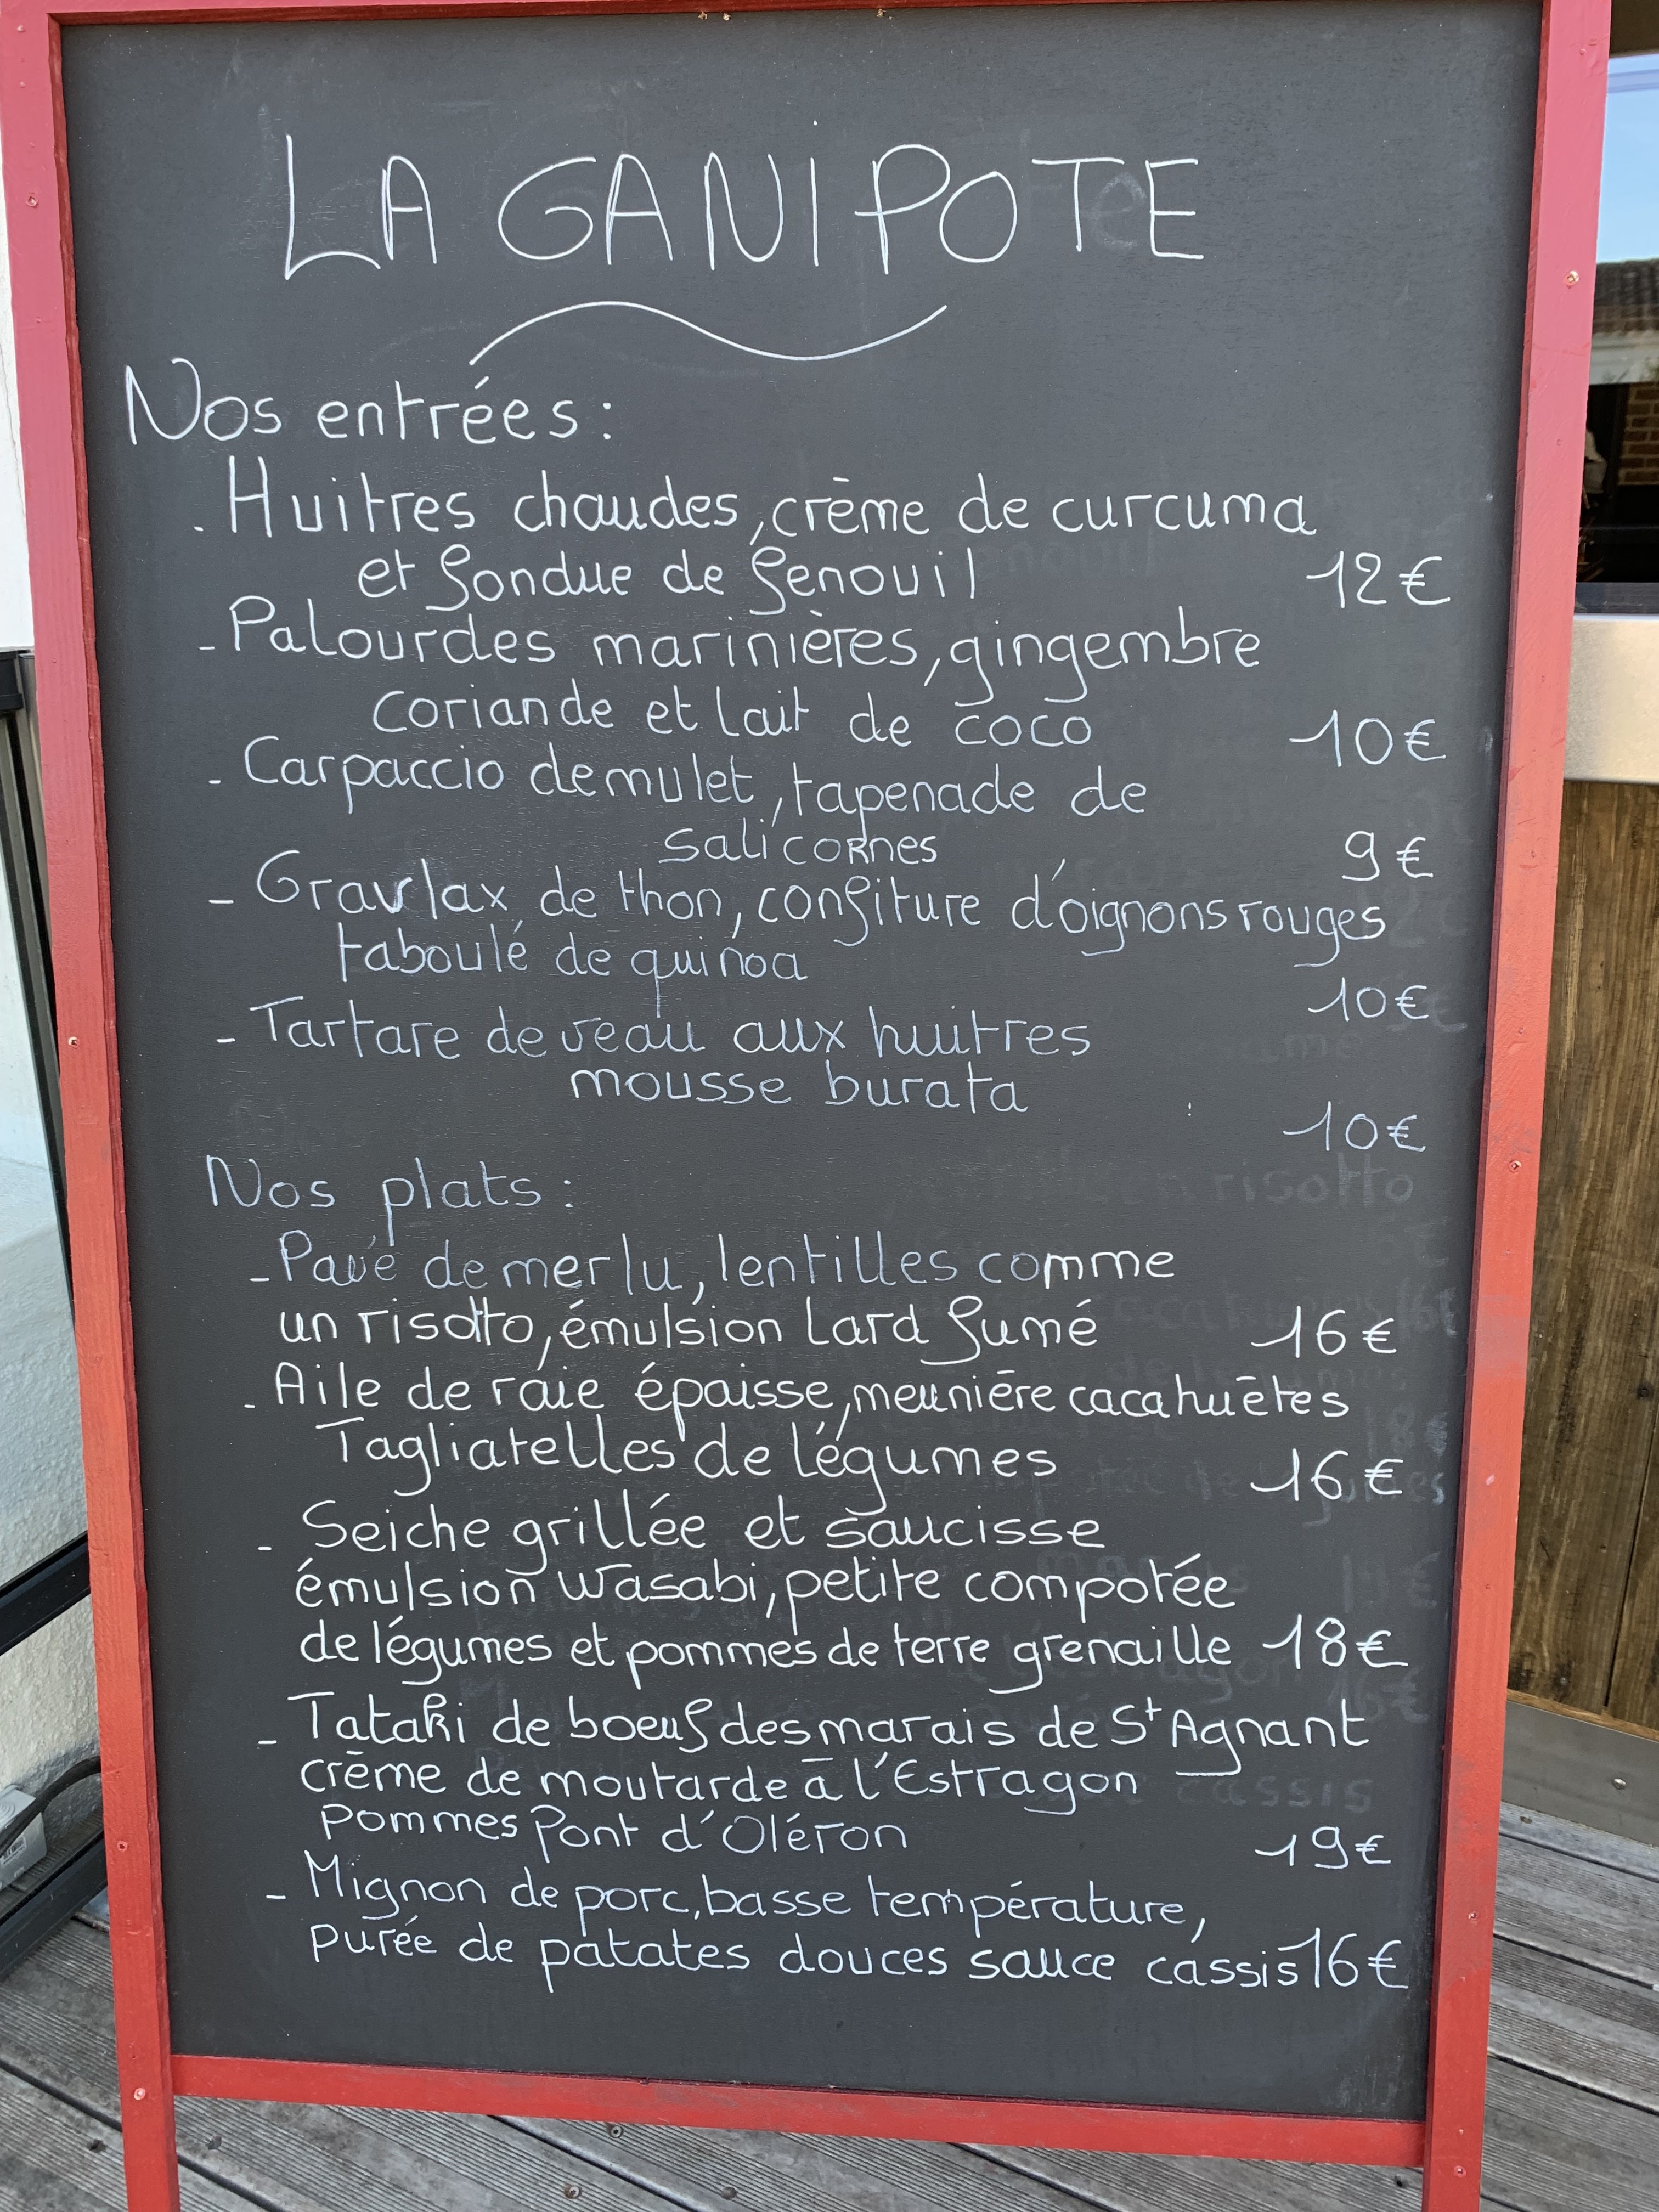 LA GANIPOTE
Nos entrées :
. Huitres chaudes, crème de curcuma
et fondue de fenouil 12€
- Palourdes marinières, gingembre
coriande et lait de coco 10€
- Carpaccio de mulet, tapenade de
salicornes 9€
- Gravlax de thon, confiture d'oignons rouges
taboulé de quinoa
10€
- Tartare de veau aux huitres
mousse burata
10€
Nos plats :
- Pavé de merlu, lentilles comme
un risotto, émulsion Lard fumé 16€
- Aile de raie épaisse, meunière cacahuètes
Tagliatelles de légumes 16€
- Seiche grillée et saucisse
émulsion wasabi, petite compotée
de légumes et pommes de terre grenaille 18€
- Tataki de boeuf des marais de St Agnant
crème de moutarde à l'Estragon
pommes Pont d'Oléron 19€
- Mignon de porc, basse température,
purée de patates douces sauce cassis 16€